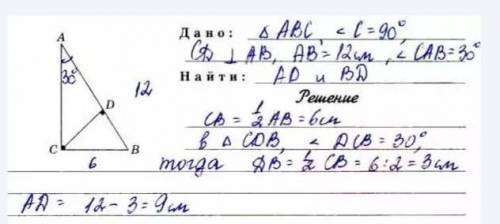 Дано: △ ABC, < C = 90°,
CD ⊥ AB, AB = 12 см, < CAB = 30°
Найти: AD и BD
Решение
CB = 1/2 AB = 6 см
В △ CDB, < DCB = 30°,
тогда DB = 1/2 CB = 6:2 = 3 см
AD = 12 - 3 = 9 см
A
30°
12
D
C
6
B